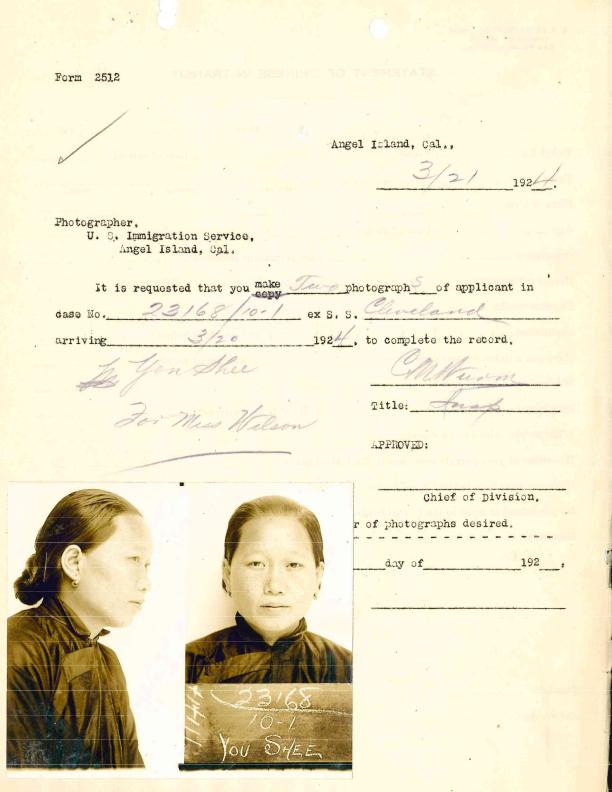 Form 2512
Angel Island, Cal.,
3/21 1924.
Photographer,
U. S. Immigration Service,
Angel Island, Cal.
It is requested that you make Two photographs of applicant in
copy
case No. 23168/10-1 ex S. S. Cleveland
arriving 3/20 1924, to complete the record.
You Shee
Title: Insp
For Miss Wilson
APPROVED:
Chief of Division.
r of photographs desired.
day of 192 .
23168
10-1
You SHEE